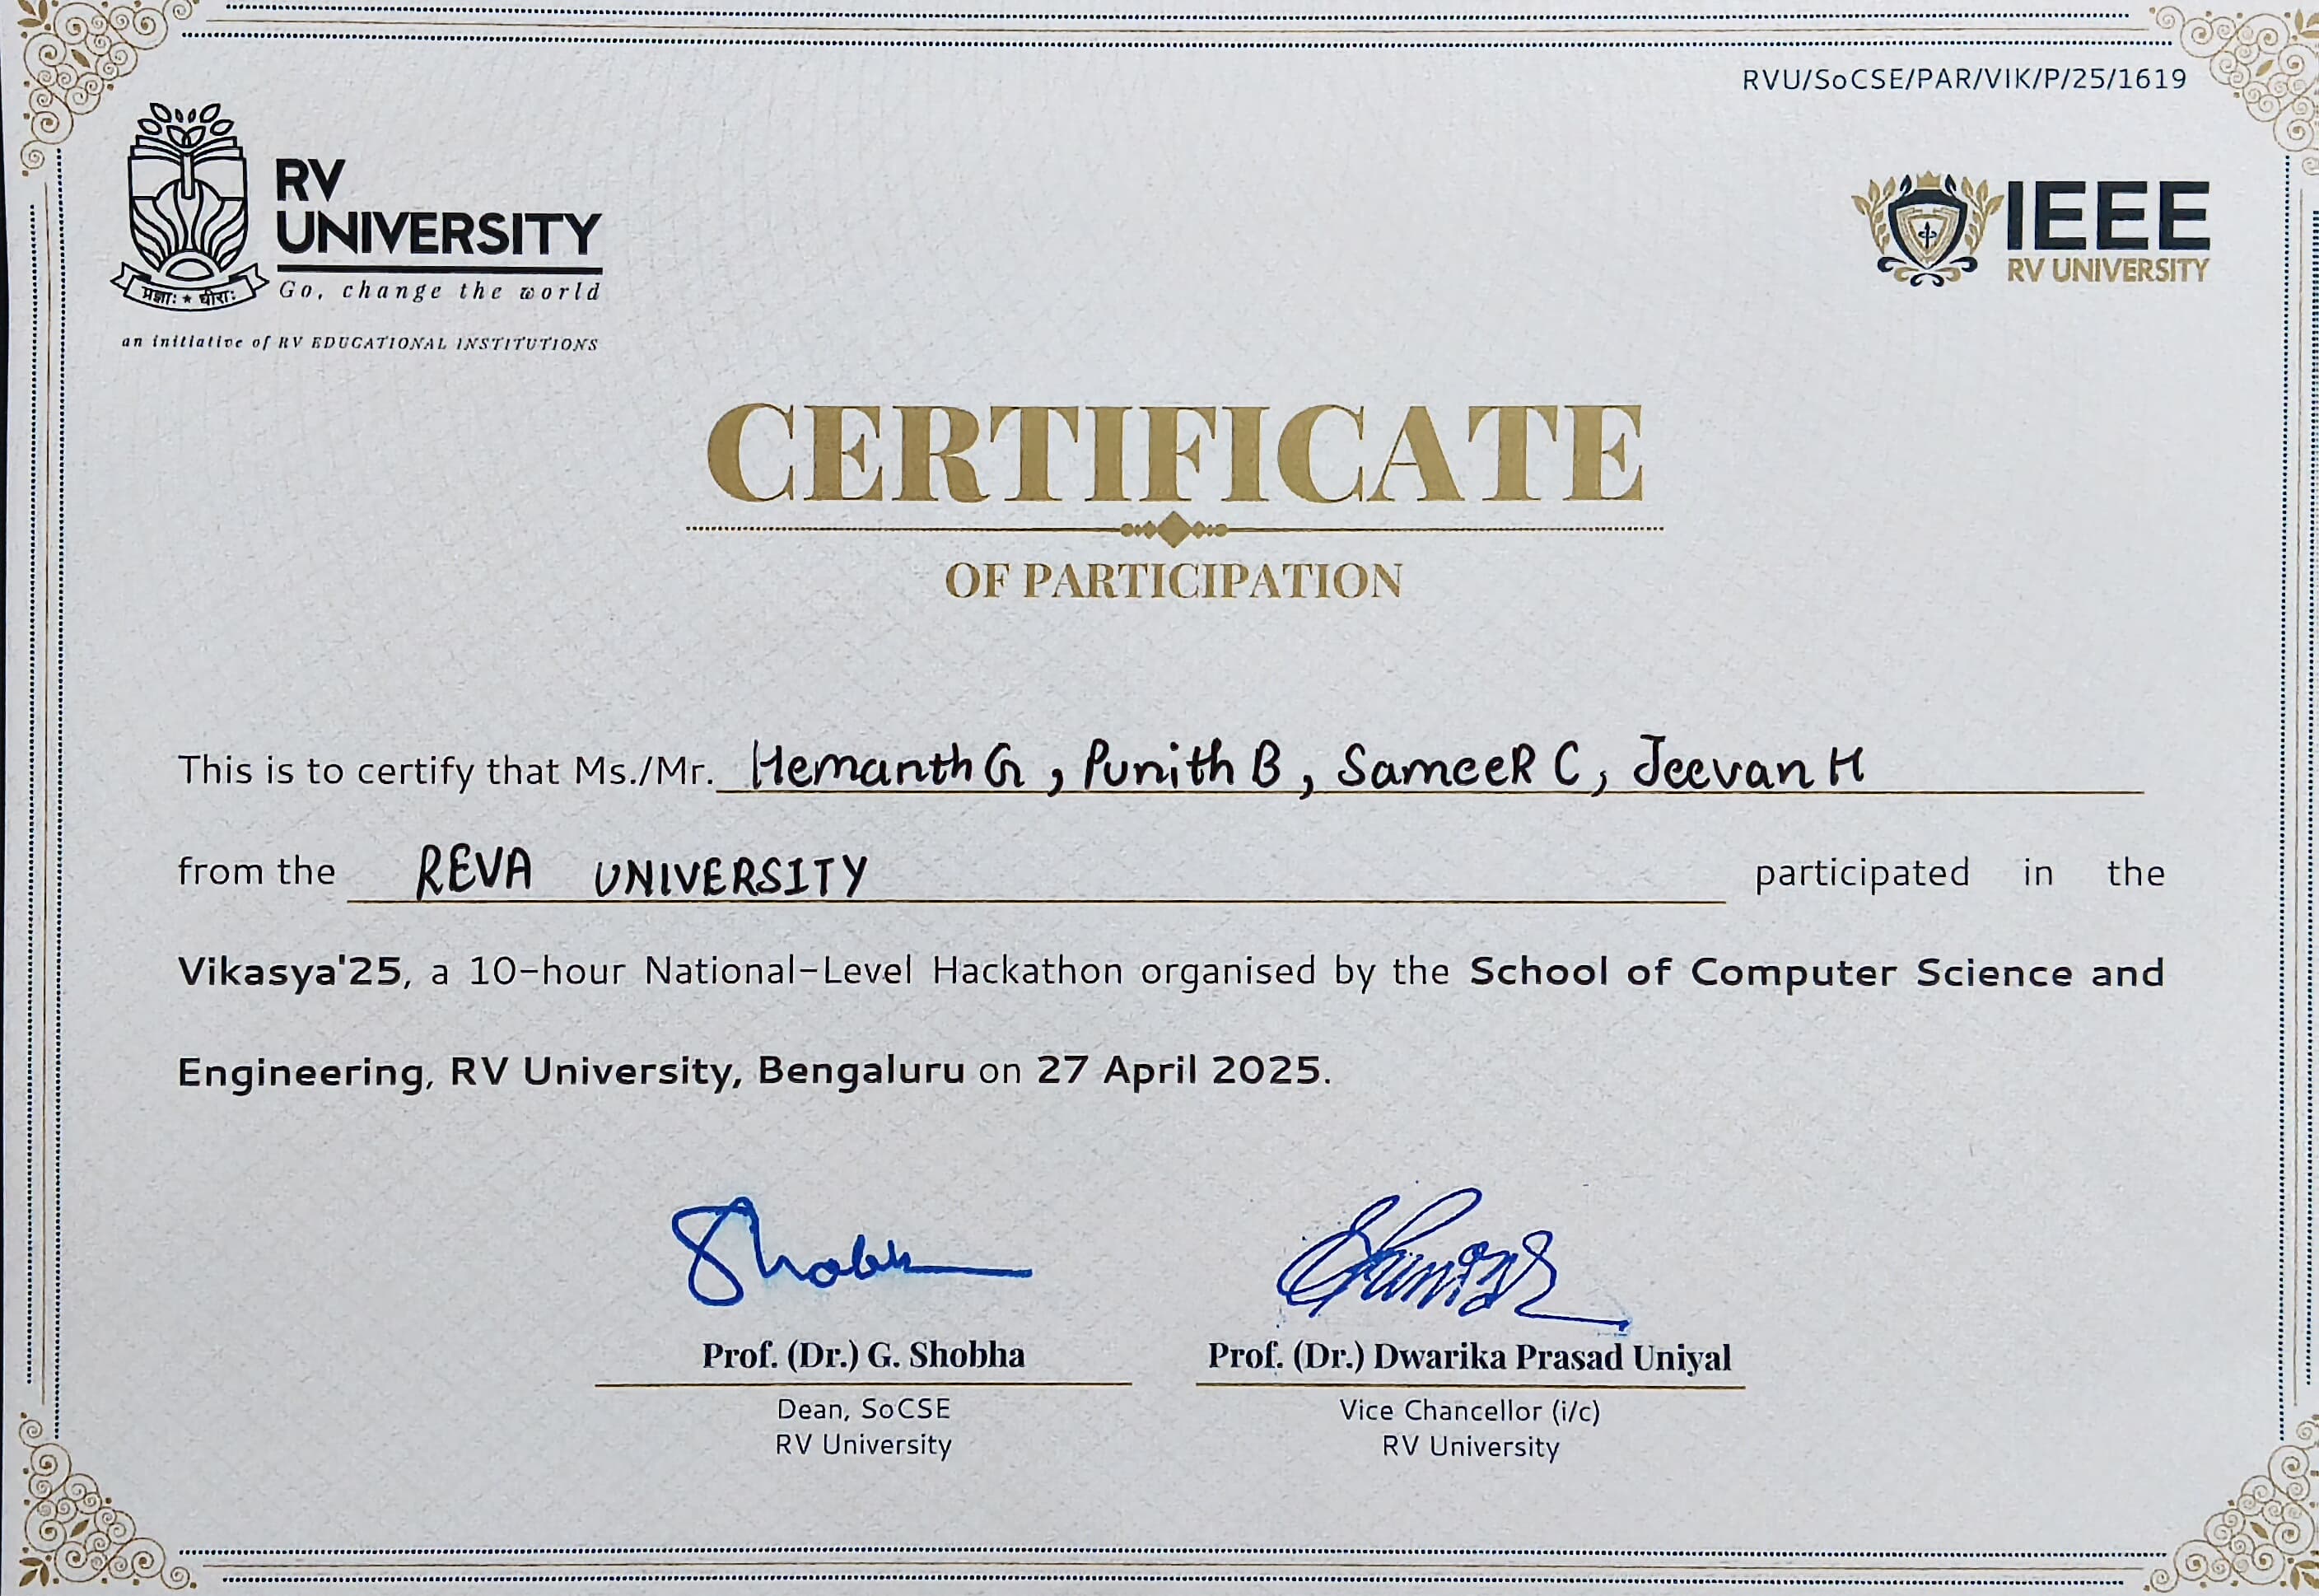 RVU/SoCSE/PAR/VIK/P/25/1619
RV
UNIVERSITY
Go, change the world
प्रज्ञाः ★ धीराः
an initiative of RV EDUCATIONAL INSTITUTIONS
IEEE
RV UNIVERSITY
CERTIFICATE
OF PARTICIPATION
This is to certify that Ms./Mr. Hemanth G, Punith B, SameeR C, Jeevan H
from the REVA UNIVERSITY participated in the
Vikasya'25, a 10-hour National-Level Hackathon organised by the School of Computer Science and
Engineering, RV University, Bengaluru on 27 April 2025.
Prof. (Dr.) G. Shobha
Dean, SoCSE
RV University
Prof. (Dr.) Dwarika Prasad Uniyal
Vice Chancellor (i/c)
RV University